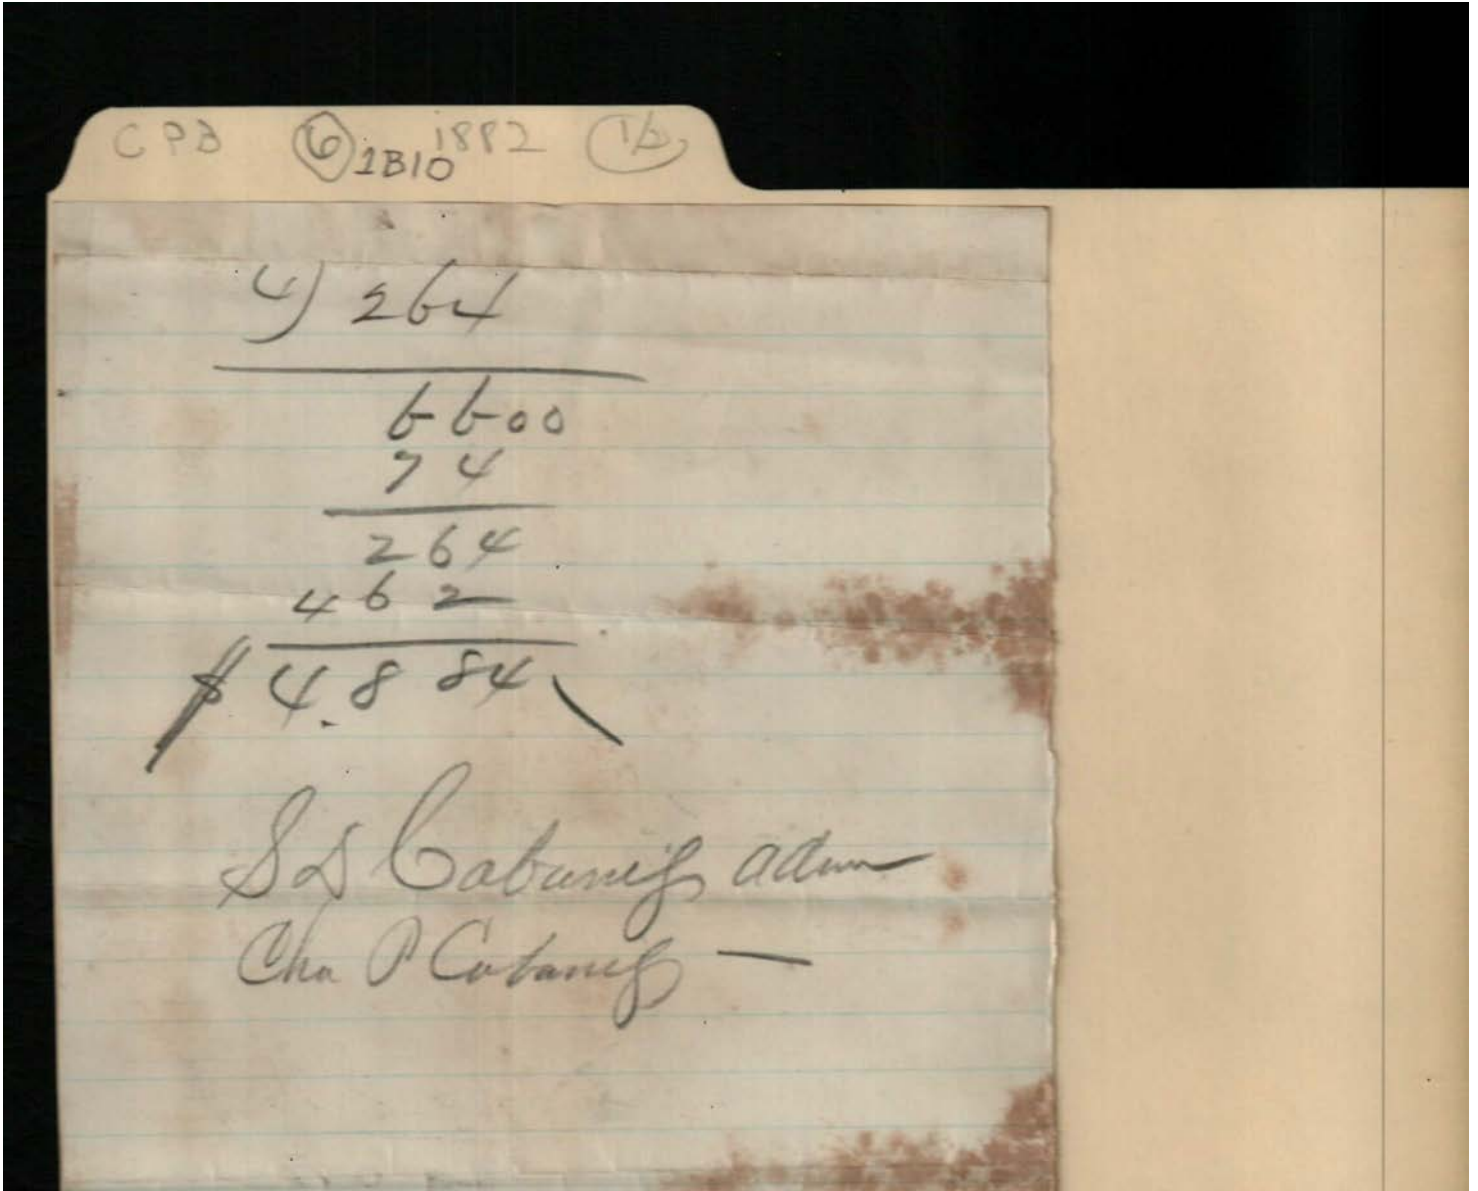 CPB 6 1B10 1882 1/2
4) 264
6600
74
264
462
$ 48 84
S D Cabaniss adm
Cha P Cabaniss —